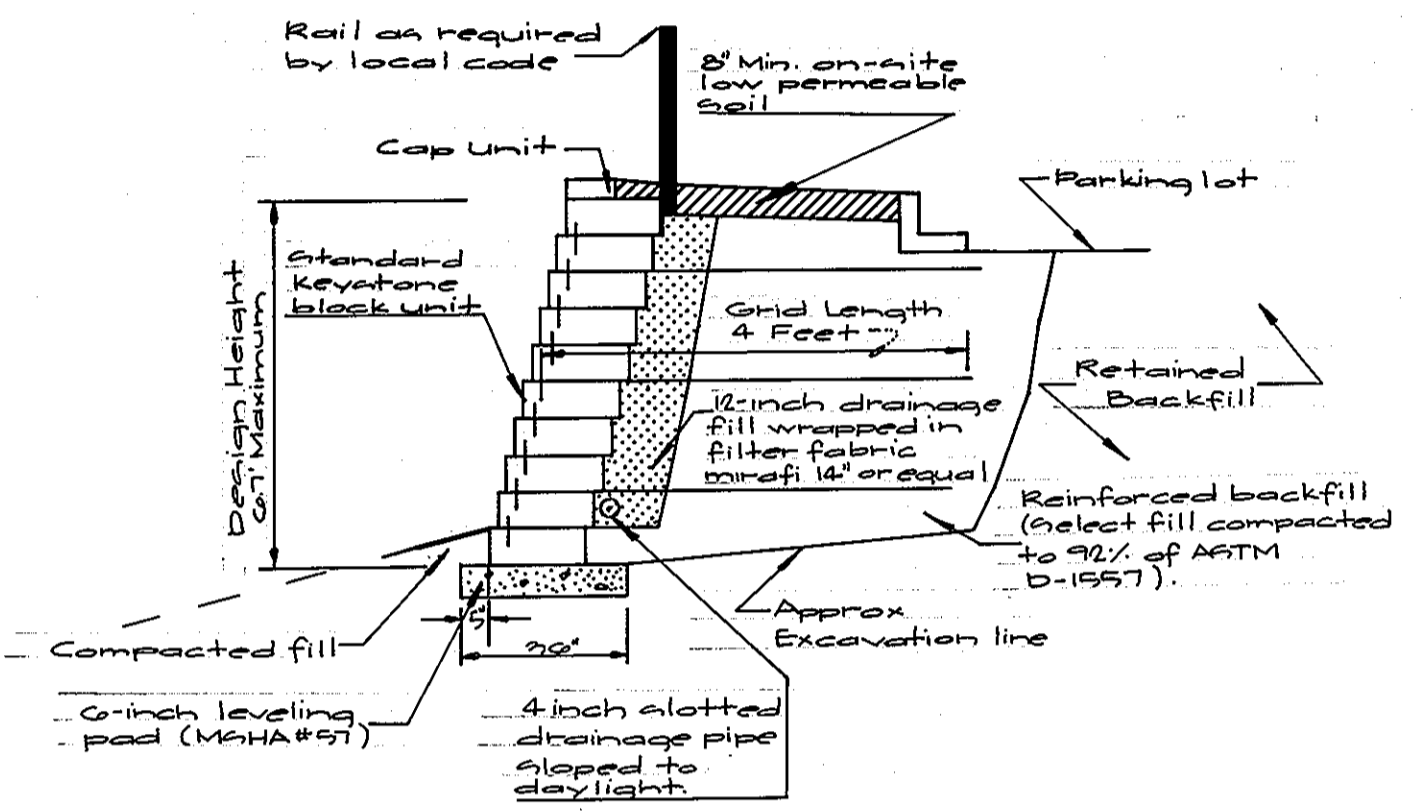 Rail as required
by local code
8" Min. on-site
low permeable
soil
Cap unit
Parking lot
Standard
keystone
block unit
Design Height
6.7' Maximum
Grid Length
4 Feet
Retained
Backfill
12-inch drainage
fill wrapped in
filter fabric
mirafi 14" or equal
Reinforced backfill
(select fill compacted
to 92% of ASTM
D-1557).
Approx
Excavation line
5"
Compacted fill
6-inch leveling
pad (MSHA #57)
4 inch slotted
drainage pipe
sloped to
daylight.